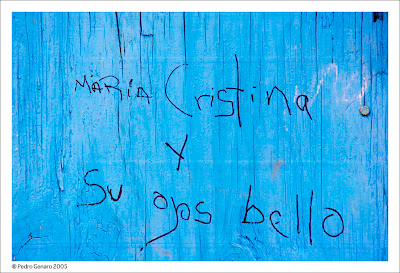 MARIA Cristina
y
Su ojos bello
® Pedro Genaro 2005